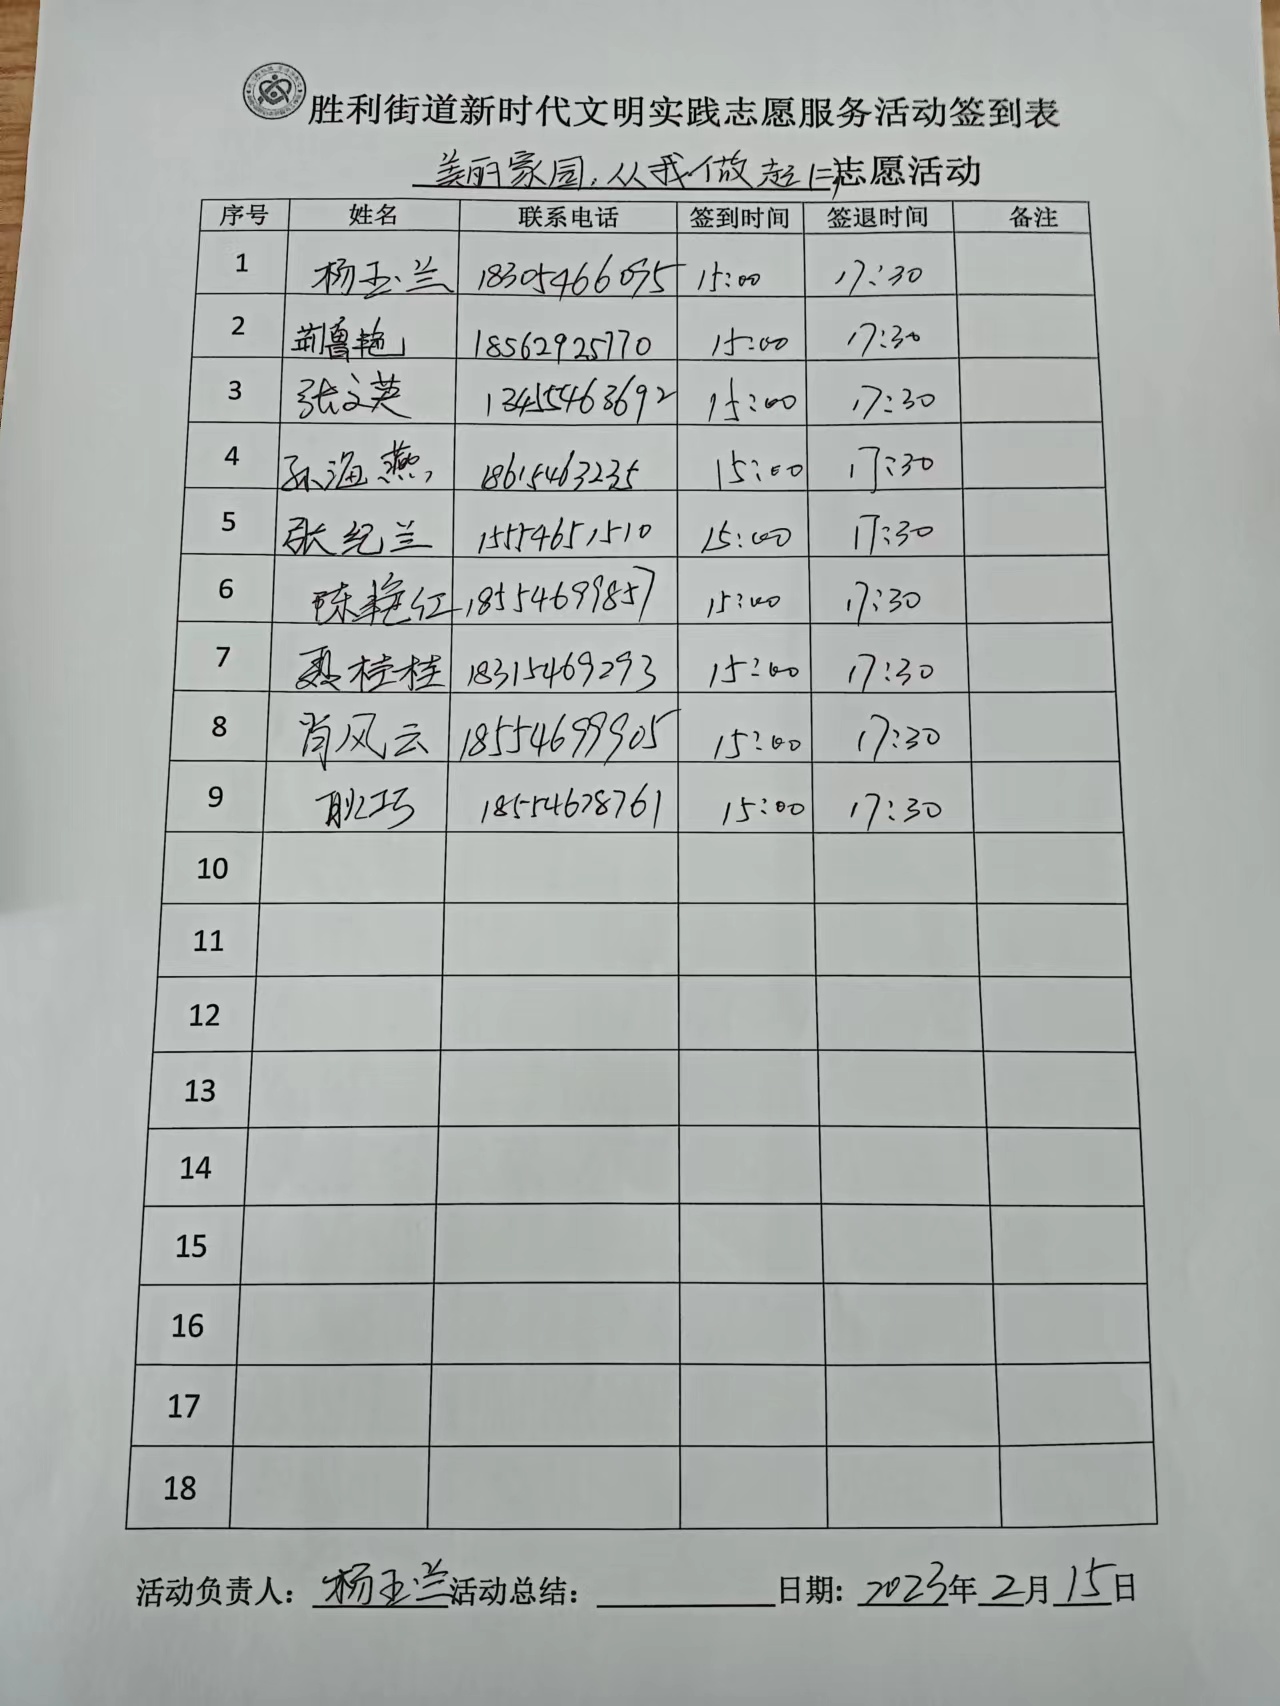 胜利街道新时代文明实践志愿服务活动签到表
美丽家园,从我做起 志愿活动
序号 姓名 联系电话 签到时间 签退时间 备注
1 杨玉兰 18305466095 15:00 17:30
2 荆鲁艳 18562925770 15:00 17:30
3 张文英 13455463692 15:00 17:30
4 孙海燕 18615463235 15:00 17:30
5 张纪兰 15554651510 15:00 17:30
6 陈艳红 18554699857 15:00 17:30
7 聂桂桂 18315469293 15:00 17:30
8 肖风云 18554699905 15:00 17:30
9 耿巧 18554678761 15:00 17:30
10
11
12
13
14
15
16
17
18
活动负责人: 杨玉兰 活动总结: 日期: 2023年2月15日